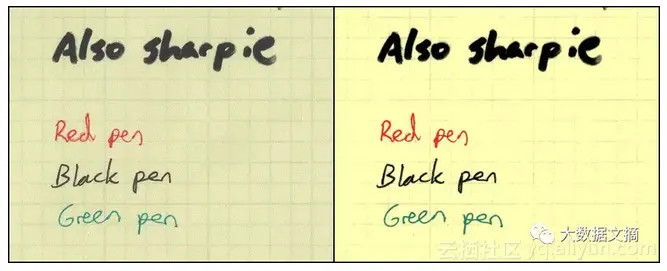 Also sharpie
Red pen
Black pen
Green pen
Also sharpie
Red pen
Black pen
Green pen
大数据文摘
云栖社区 yq.aliyun.com